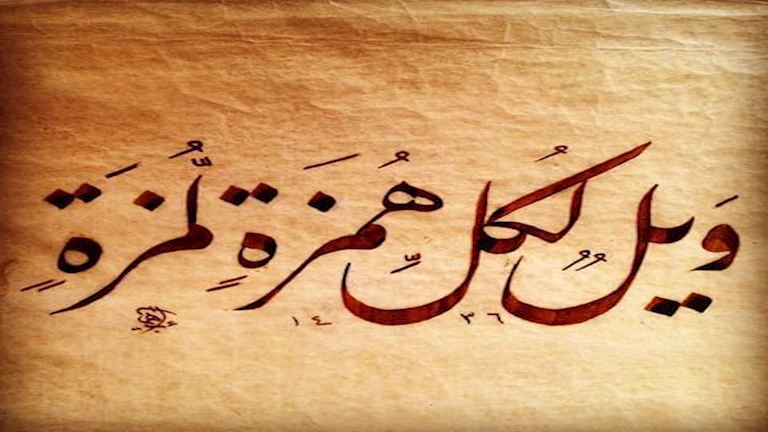 وَيلٌ لكُلِّ هُمَزَةٍ لُّمَزَةٍ
١٤ ٣٦